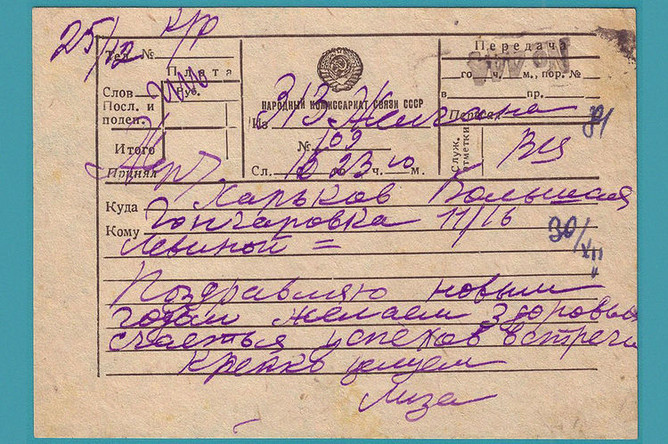 25/12 К/р
Тел. №
Передача
Плата
го ч., м., пор. №
Слов
Руб.
НАРОДНЫЙ КОМИССАРИАТ СВЯЗИ СССР
в пр.
Посл. и
подеп.
Из 313
Передал
91
№ 109
Итого
Служ.
отметки
ВЦ
Принял
Сл. 18 23 ч. 10 м.
Куда Харьков Большая
Кому Гончаровка 11/16
Левиной =
30/XII
Поздравляю новым
годом желаем здоровья
счастья успехов встречи
Крепко целуем
Лиза